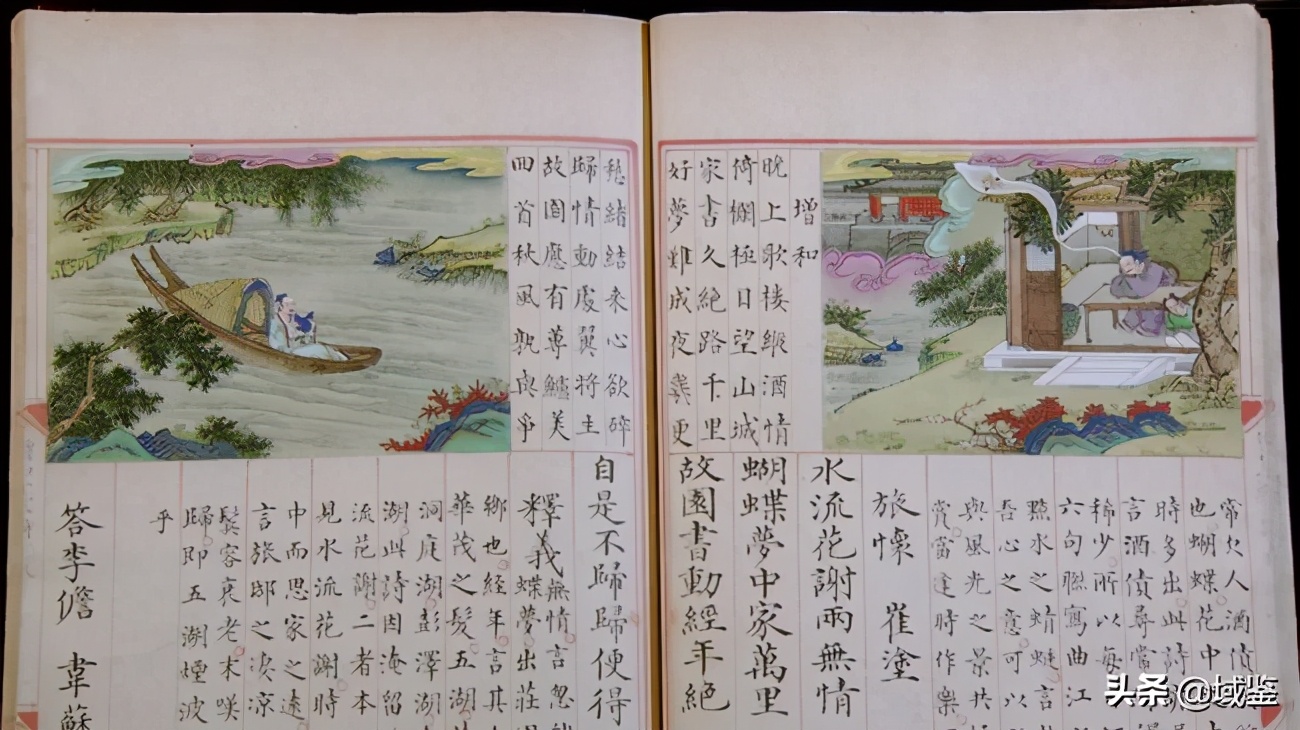 增和
晚上歌樓緩酒情
倚欄極日望山城
家書久絕路千里
好夢難成夜幾更
常欠人酒債
也蝴蝶花中
時多出此詩
言酒債尋常
稀少所以每
六句聯寫曲江
點水之蜻蜓言
吾心之意可以
與風光之景共
賞當逢時作樂
旅懷 崔塗
水流花謝兩無情
蝴蝶夢中家萬里
故園書動經年絕
愁緒結來心欲碎
歸情動處翼將生
故園應有尊鱸美
回首秋風孰與爭
自是不歸歸便得
釋義 無情言忽
蝶夢出莊
鄉也經年言其
華茂之髮五湖
洞庭湖彭澤湖
湖此詩因淹留
流花謝二者本
見水流花謝時
中而思家之遠
言旅邸之淒涼
鬢容衰老末嘆
歸即五湖煙波
乎
答李儋 韋蘇
头条 @域鉴